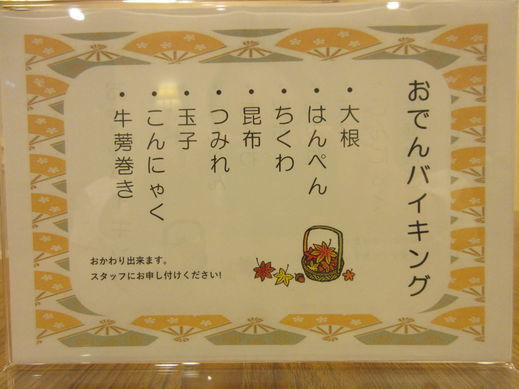 おでんバイキング
・大根
・はんぺん
・ちくわ
・昆布
・つみれ
・玉子
・こんにゃく
・牛蒡巻き
おかわり出来ます。
スタッフにお申し付けください!